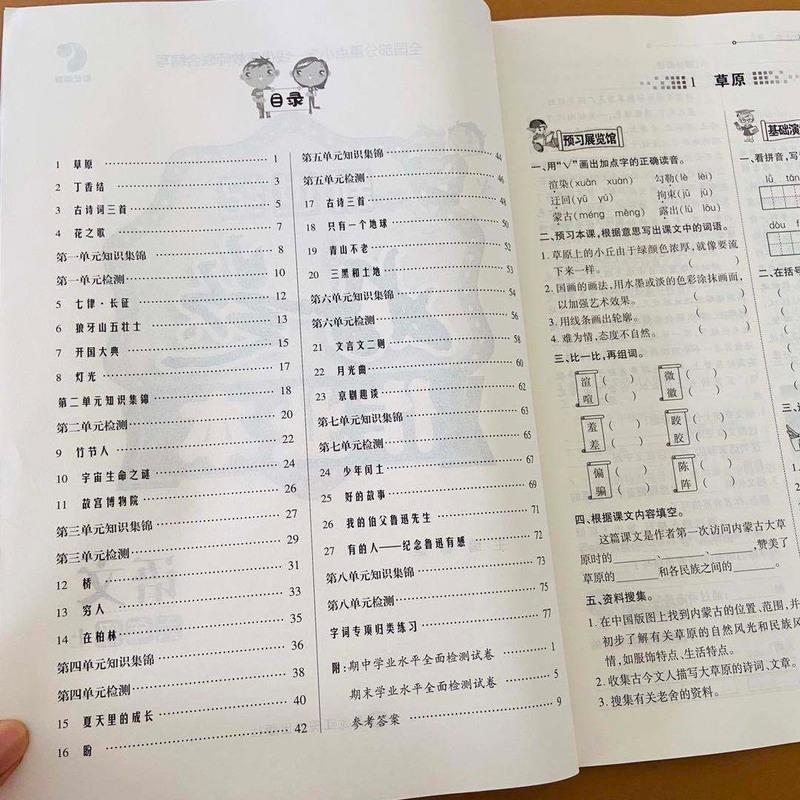 目录
1 草原 1
2 丁香结 3
3 古诗词三首 5
4 花之歌 7
第一单元知识集锦 8
第一单元检测 10
5 七律·长征 12
6 狼牙山五壮士 13
7 开国大典 15
8 灯光 17
第二单元知识集锦 18
第二单元检测 20
9 竹节人 22
10 宇宙生命之谜 24
11 故宫博物院 26
第三单元知识集锦 27
第三单元检测 29
12 桥 31
13 穷人 33
14 在柏林 35
第四单元知识集锦 36
第四单元检测 38
15 夏天里的成长 40
16 盼 42
第五单元知识集锦 44
第五单元检测 46
17 古诗三首 48
18 只有一个地球 50
19 青山不老 52
20 三黑和土地 53
第六单元知识集锦 54
第六单元检测 56
21 文言文二则 58
22 月光曲 60
23 京剧趣谈 62
第七单元知识集锦 63
第七单元检测 65
24 少年闰土 67
25 好的故事 69
26 我的伯父鲁迅先生 71
27 有的人——纪念鲁迅有感 72
第八单元知识集锦 73
第八单元检测 75
字词专项归类练习 77
附:期中学业水平全面检测试卷 1
期末学业水平全面检测试卷 5
参考答案 9
1 草原
预习展览馆
一、用“√”画出加点字的正确读音。
渲染(xuān xuàn) 勾勒(lè lēi)
迂回(yū yú) 拘束(jū jù)
蒙古(méng měng) 露出(lù lòu)
二、预习本课,根据意思写出课文中的词语。
1. 草原上的小丘由于绿颜色浓厚,就像要流
下来一样。 ( )
2. 国画的画法,用水墨或淡的色彩涂抹画面,
以加强艺术效果。 ( )
3. 用线条画出轮廓。 ( )
4. 难为情,态度不自然。 ( )
三、比一比,再组词。
渲( ) 微( )
喧( ) 徽( )
羞( ) 跤( )
差( ) 胶( )
偏( ) 陈( )
骗( ) 阵( )
四、根据课文内容填空。
这篇课文是作者第一次访问内蒙古大草
原时的______、______、______,赞美了
草原的______和各民族之间的______。
五、资料搜集。
1. 在中国版图上找到内蒙古的位置、范围,并
初步了解有关草原的自然风光和民族风
情,如服饰特点、生活特点。
2. 收集古今文人描写大草原的诗词、文章。
3. 搜集有关老舍的资料。
基础演
一、看拼音,写
lǜ
dòu
二、在括号